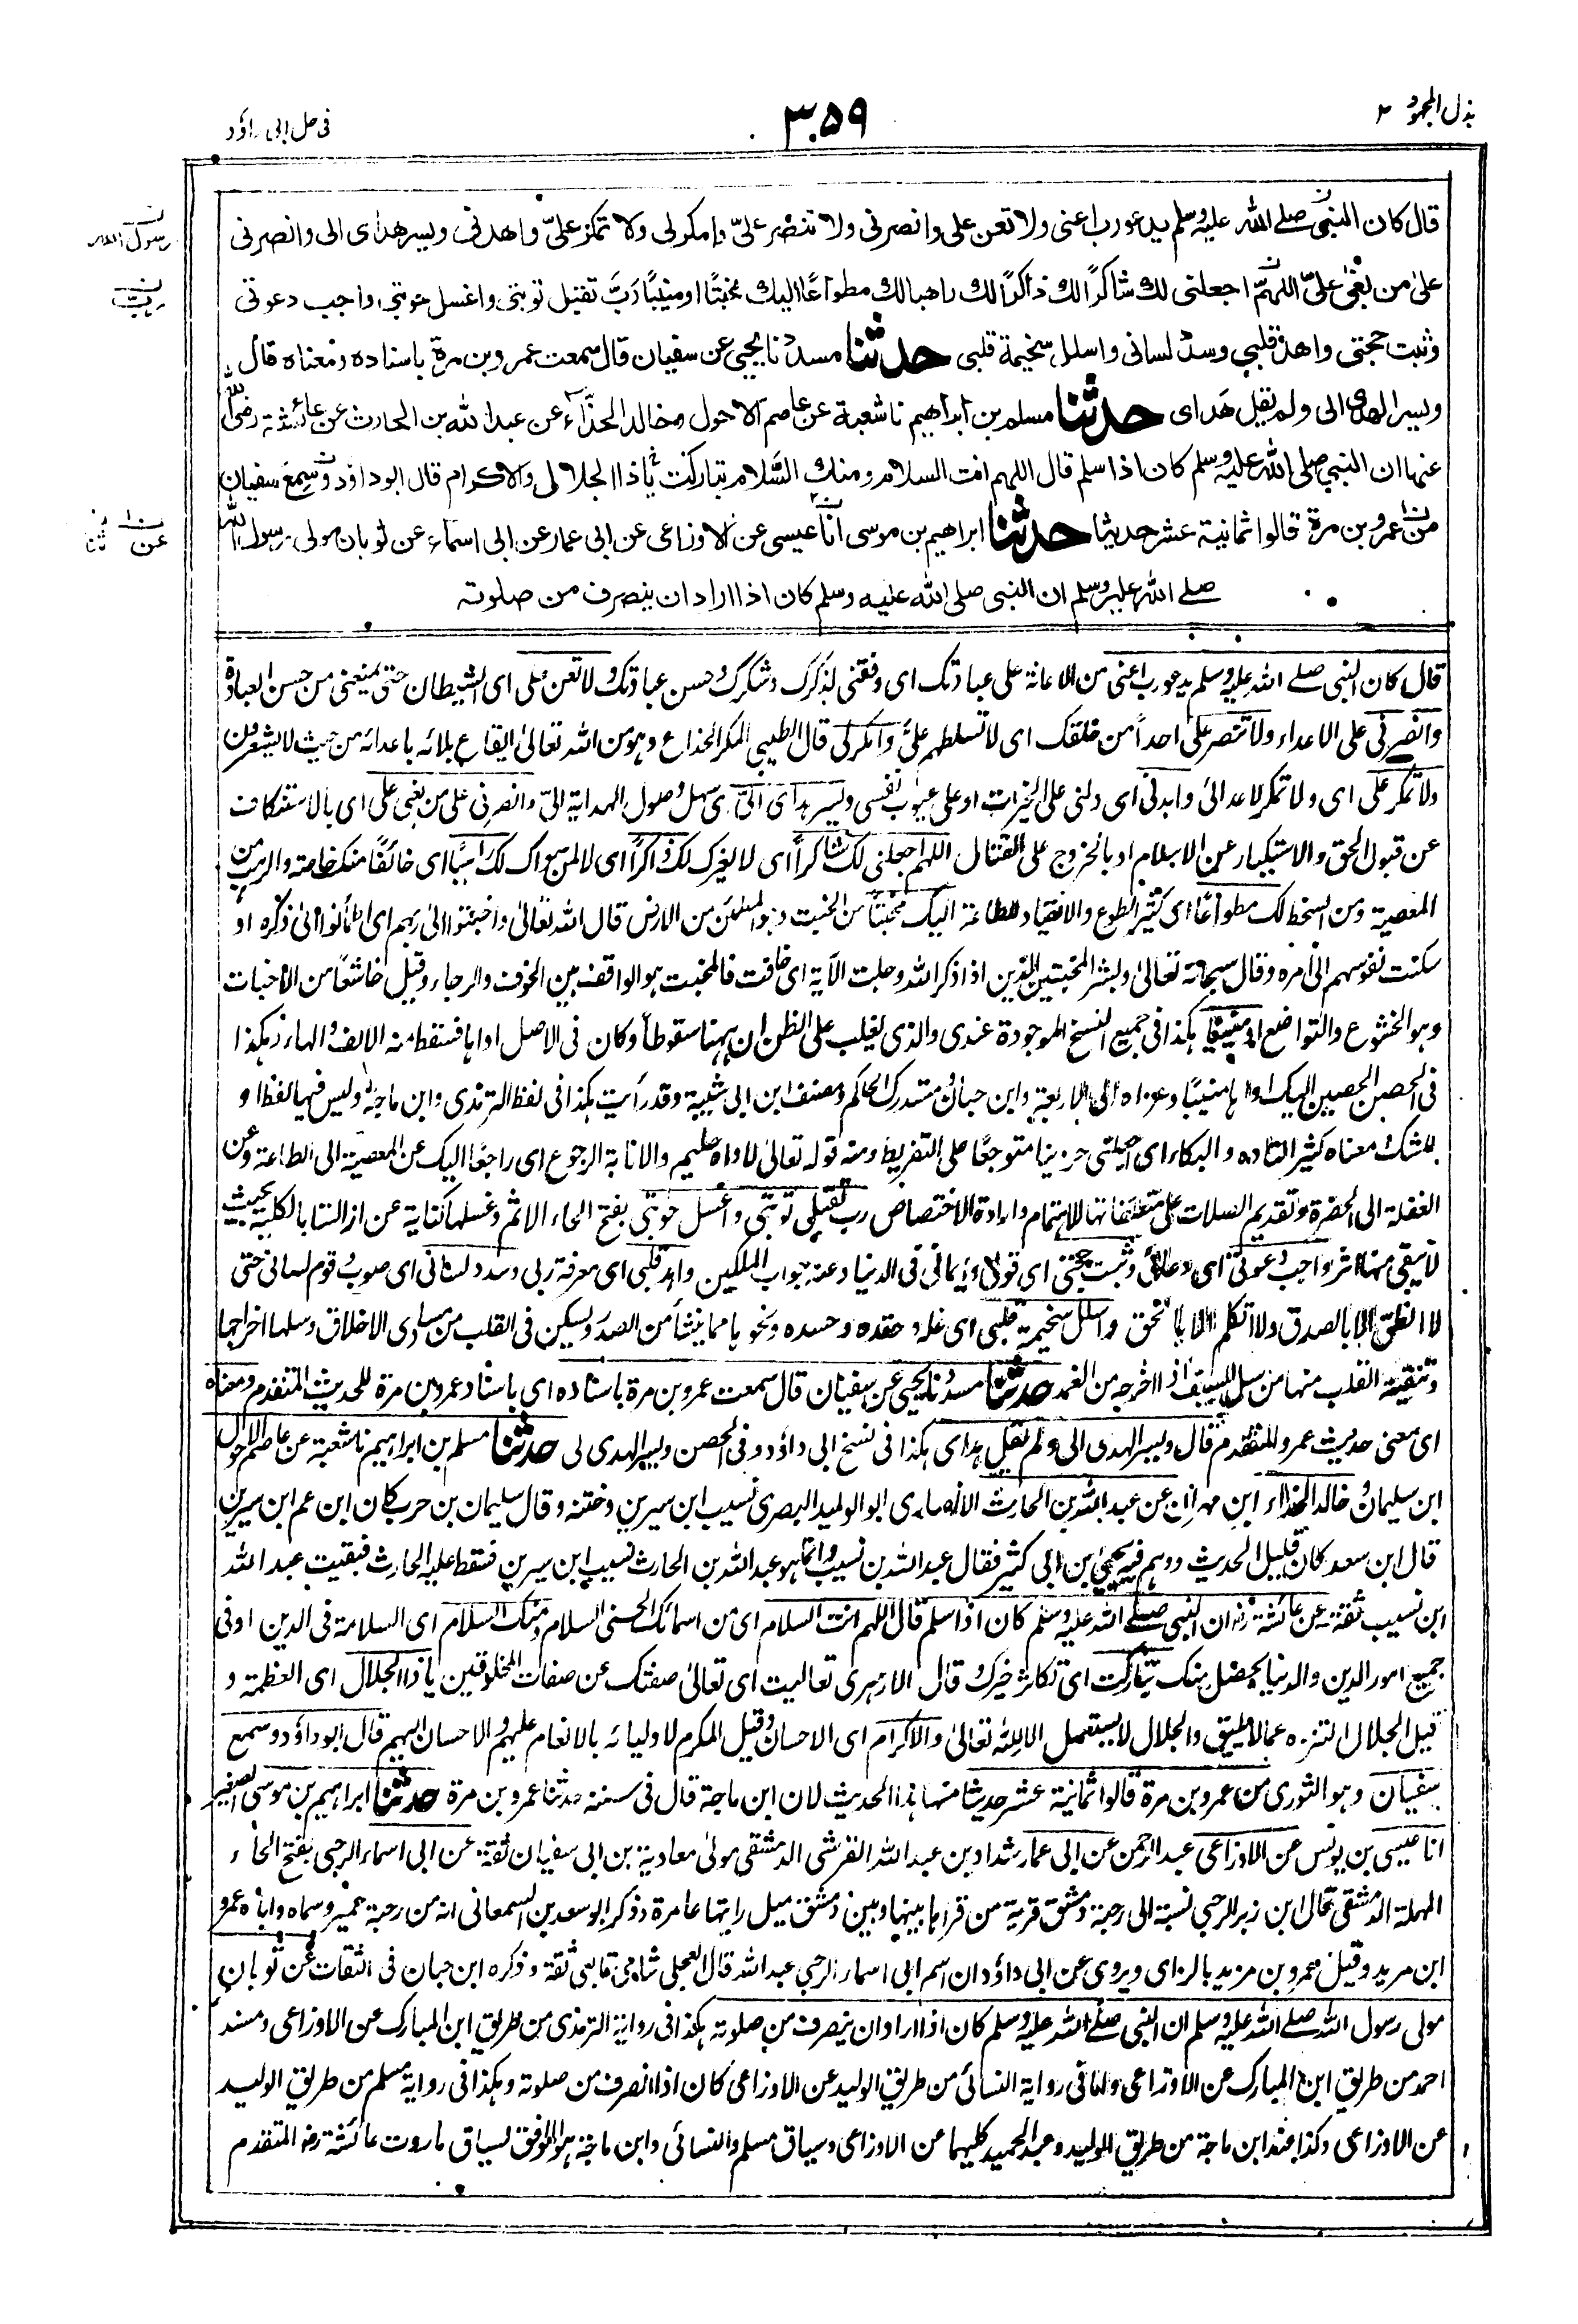 بذل المجهود ٢
٣٥٩
فى حل ابى داؤد
قال كان النبى صلے الله عليه وسلم يدعو رب اعنى ولا تعن على وانصرنى ولا تنصر علىّ وامكرلى ولا تمكر علىّ واهدنى ويسر هداى الى وانصرنى
على من بغى علىّ اللهم اجعلنى لك شاكرًا لك ذاكرًا لك راهبا لك مطواعًا اليك مخبتًا او منيبًا رب تقبل توبتى واغسل حوبتى واجب دعوتى
وثبت حجتى واهد قلبى وسدد لسانى واسلل سخيمة قلبى حدثنا مسدد نا يحيى عن سفيان قال سمعت عمرو بن مرة باسناده ومعناه قال
ويسر الهدى الى ولم يقل هداى حدثنا مسلم بن ابراهيم نا شعبة عن عاصم الاحول وخالد الحذاء عن عبد الله بن الحارث عن عائشة رضى الله
عنها ان النبى صلى الله عليه وسلم كان اذا سلم قال اللهم انت السلام ومنك السلام تباركت يا ذا الجلال والاكرام قال ابو داؤد وسمع سفيان
من عمرو بن مرة قالوا ثمانية عشر حديثا حدثنا ابراهيم بن موسى انا عيسى عن الاوزاعى عن ابى عمار عن ابى اسماء عن ثوبان مولى رسول الله
صلے الله عليه وسلم ان النبى صلى الله عليه وسلم كان اذا اراد ان ينصرف من صلوته
رسول الله
رب
عن
قال كان النبى صلے الله عليه وسلم يدعو رب اعنى من الاعانة على عبادتك اى وفقنى لذكرك وشكرك وحسن عبادتك ولا تعن على اى الشيطان حتى يمنعنى من حسن العبادة
وانصرنى على الاعداء ولا تنصر على احداً من خلقك اى لا تسلطهم علىّ وامكرلى قال الطيبى المكر الخداع وهو من الله تعالىٰ ايقاع بلائه باعدائه من حيث لا يشعرون
ولا تمكر على اى ولا تمكر لاعدائى واهدنى اى دلنى على الخيرات او على عيوب نفسى ويسر هداى الىّ اى سهل وصول الهداية الىّ وانصرنى على من بغى على اى بالاستنكاف
عن قبول الحق والاستكبار عن الاسلام او بالخروج على القتال اللهم اجعلنى لك شاكراً اى لا لغيرك لك ذاكراً اى لا لمن سواك لك راهبًا اى خائفًا منك خاصة والرهب من
المعصية ومن السخط لك مطواعًا اى كثير الطوع والانقياد للطاعة اليك مخبتًا من الخبت وهو المطمئن من الارض قال الله تعالىٰ واخبتوا الى ربهم اى اطمأنوا الىٰ ذكره او
سكنت نفوسهم الى امره وقال سبحانه تعالىٰ وبشر المخبتين الذين اذا ذكر الله وجلت الآية اى خافت فالمخبت هو الواقف بين الخوف والرجاء وقيل خاشعًا من الاخبات
وهو الخشوع والتواضع او منيبًا هكذا فى جميع النسخ الموجودة عندى والذى يغلب على الظن ان ههنا سقوطاً وكان فى الاصل اواها فسقط منه الالف والهاء وهكذا
فى الحصن الحصين اليك اواها منيبًا وعزاه الى الاربعة وابن حبان ومستدرك الحاكم ومصنف ابن ابى شيبة وقد رأيت هكذا فى لفظ الترمذى وابن ماجة وليس فيها لفظ او
للشك معناه كثير التاوه والبكاء اى اجعلنى حزينا متوجعًا على التفريط ومنه قوله تعالىٰ لاواه حليم والانابة الرجوع اى راجعًا اليك عن المعصية الى الطاعة وعن
الغفلة الى الحضرة وتقديم الصلات على متعلقاتها للاهتمام وارادة الاختصاص رب تقبل توبتى واغسل حوبتى بفتح الحاء الاثم وغسلها كناية عن ازالتها بالكلية بحيث
لا يبقى منها اثر واجب دعوتى اى دعائى وثبت حجتى اى قولى وايمانى فى الدنيا وعند جواب الملكين واهد قلبى اى معرفة ربى وسدد لسانى اى صوب وقوم لسانى حتى
لا انطق الا بالصدق ولا اتكلم الا بالحق واسلل سخيمة قلبى اى غله وحقده وحسده ونحوها مما ينشأ من الصدر ويسكن فى القلب من مساوى الاخلاق وسلها اخراجها
وتنقية القلب منها من سل السيف اذا اخرجه من الغمد حدثنا مسدد نا يحيى عن سفيان قال سمعت عمرو بن مرة باسناده اى باسناد عمرو بن مرة للحديث المتقدم ومعناه
اى معنى حديث عمرو المتقدم قال ويسر الهدى الى ولم يقل هداى هكذا فى نسخ ابى داؤد وفى الحصن ويسر الهدى لى حدثنا مسلم بن ابراهيم نا شعبة عن عاصم الاحول
ابن سليمان وخالد الحذاء ابن مهران عن عبد الله بن الحارث الانصارى ابو الوليد البصرى نسيب ابن سيرين وختنه وقال سليمان بن حرب كان ابن عم ابن سيرين
قال ابن سعد كان قليل الحديث ووهم فيه يحيى بن ابى كثير فقال عبد الله بن نسيب وانما هو عبد الله بن الحارث نسيب ابن سيرين فسقط عليه الحارث فبقيت عبد الله
ابن نسيب ثقة عن عائشة رضـ ان النبى صلے الله عليه وسلم كان اذا سلم قال اللهم انت السلام اى من اسمائك الحسنى السلام ومنك السلام اى السلامة فى الدين او فى
جميع امور الدين والدنيا يحصل منك تباركت اى تكاثر خيرك وقال الازهرى تعاليت اى تعالىٰ صفتك عن صفات المخلوقين يا ذا الجلال اى العظمة و
قيل الجلال التنزه عما لا يليق والجلال لا يستعمل الا لله تعالىٰ والاكرام اى الاحسان وقيل المكرم لاوليائه بالانعام عليهم والاحسان اليهم قال ابو داؤد وسمع
سفيان وهو الثورى من عمرو بن مرة قالوا ثمانية عشر حديثا منها هذا الحديث لان ابن ماجة قال فى سننه حدثنا عمرو بن مرة حدثنا ابراهيم بن موسى الصغير
انا عيسى بن يونس عن الاوزاعى عبد الرحمن عن ابى عمار شداد بن عبد الله القرشى الدمشقى مولىٰ معاوية بن ابى سفيان ثقة عن ابى اسماء الرحبى بفتح الحاء
المهملة الدمشقى قال ابن زبر الرحبى نسبة الى رحبة دمشق قرية من قراها بينها وبين دمشق ميل رايتها عامرة وذكر ابو سعد بن السمعانى انه من رحبة حمير وسماه واباه عمرو
ابن مريد وقيل عمرو بن مزيد بالزاى ويروى عن ابى داؤد ان اسم ابى اسماء الرحبى عبد الله قال العجلى شامى تابعى ثقة وذكره ابن حبان فى الثقات عن ثوبان
مولى رسول الله صلے الله عليه وسلم ان النبى صلے الله عليه وسلم كان اذا اراد ان ينصرف من صلوته هكذا فى رواية الترمذى من طريق ابن المبارك عن الاوزاعى ومسند
احمد من طريق ابن المبارك عن الاوزاعى واما فى رواية النسائى من طريق الوليد عن الاوزاعى كان اذا انصرف من صلوته وهكذا فى رواية مسلم من طريق الوليد
عن الاوزاعى وكذا عند ابن ماجة من طريق الوليد وعبد الحميد كليهما عن الاوزاعى وسياق مسلم والنسائى وابن ماجة هو الموفق لسياق ما روت عائشة رضـ المتقدم